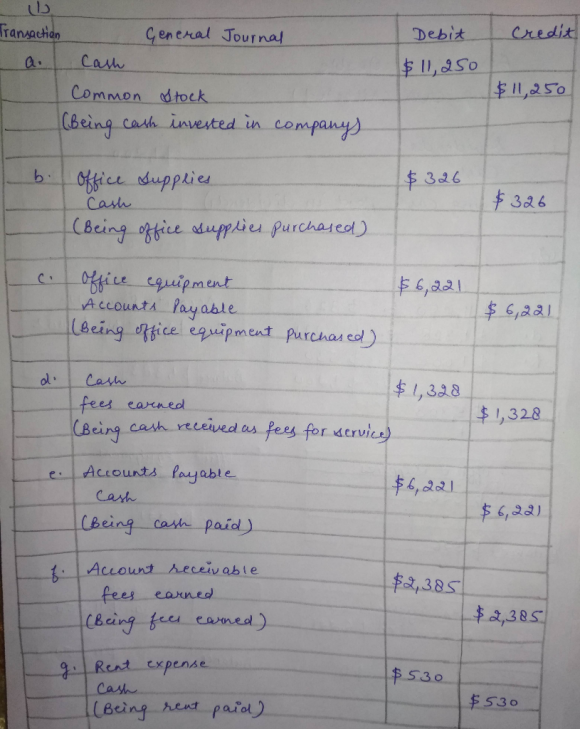 (1)
Transaction General Journal Debit Credit
a. Cash $11,250
Common Stock $11,250
(Being cash invested in company)
b. Office Supplies $326
Cash $326
(Being office supplies purchased)
c. Office equipment $6,221
Accounts Payable $6,221
(Being office equipment purchased)
d. Cash $1,328
fees earned $1,328
(Being cash received as fees for service)
e. Accounts Payable $6,221
Cash $6,221
(Being cash paid)
f. Account receivable $2,385
fees earned $2,385
(Being fees earned)
g. Rent expense $530
Cash $530
(Being rent paid)